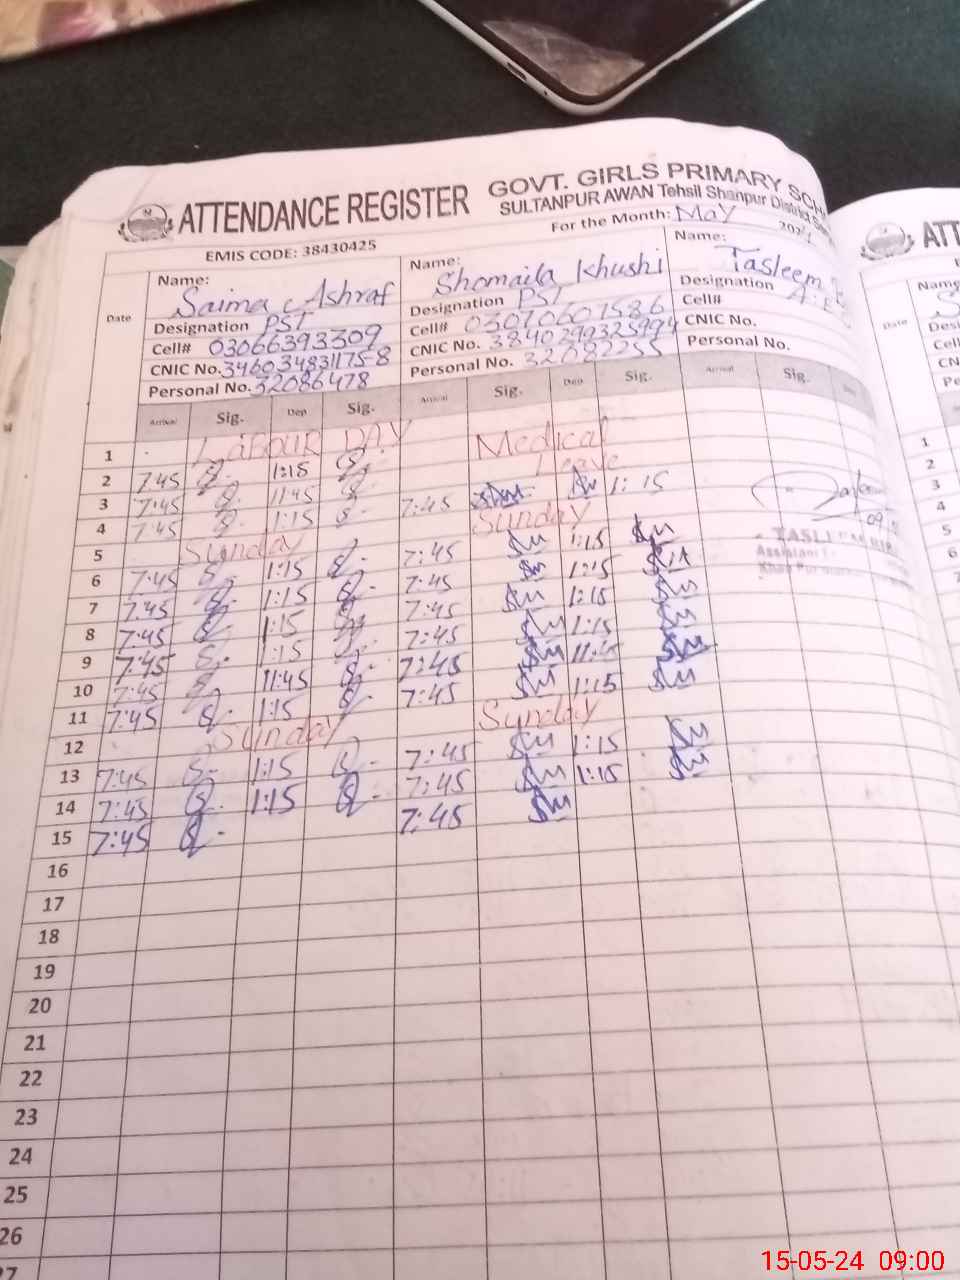 ATTENDANCE REGISTER
GOVT. GIRLS PRIMARY SCH
SULTANPUR AWAN Tehsil Shahpur District
EMIS CODE: 38430425
For the Month: May
Date
Name: Saima Ashraf
Designation PST
Cell# 03066393309
CNIC No. 3460348311758
Personal No. 32086478
Name: Shomaila Khushi
Designation PST
Cell# 03070607586
CNIC No. 3840299325994
Personal No. 32082255
Name: Tasleem
Designation
Cell#
CNIC No.
Personal No.
Arrival Sig. Dep Sig. Arrival Sig. Dep Sig. Arrival Sig.
1 Labour DAY Medical
2 7:45 1:15 Leave
3 7:45 11:45 7:45 1:15
4 7:45 1:15 Sunday
5 Sunday 7:45 1:15
6 7:45 1:15 7:45 1:15
7 7:45 1:15 7:45 1:15
8 7:45 1:15 7:45 1:15
9 7:45 1:15 7:45 11:45
10 7:45 11:45 7:45 1:15
11 7:45 1:15 Sunday
12 Sunday 7:45 1:15
13 7:45 1:15 7:45 1:15
14 7:45 1:15 7:45
15 7:45
16
17
18
19
20
21
22
23
24
25
26
27
ATT
Date
Name
Desi
Cell
CN
Pe
1
2
3
4
5
6
15-05-24 09:00